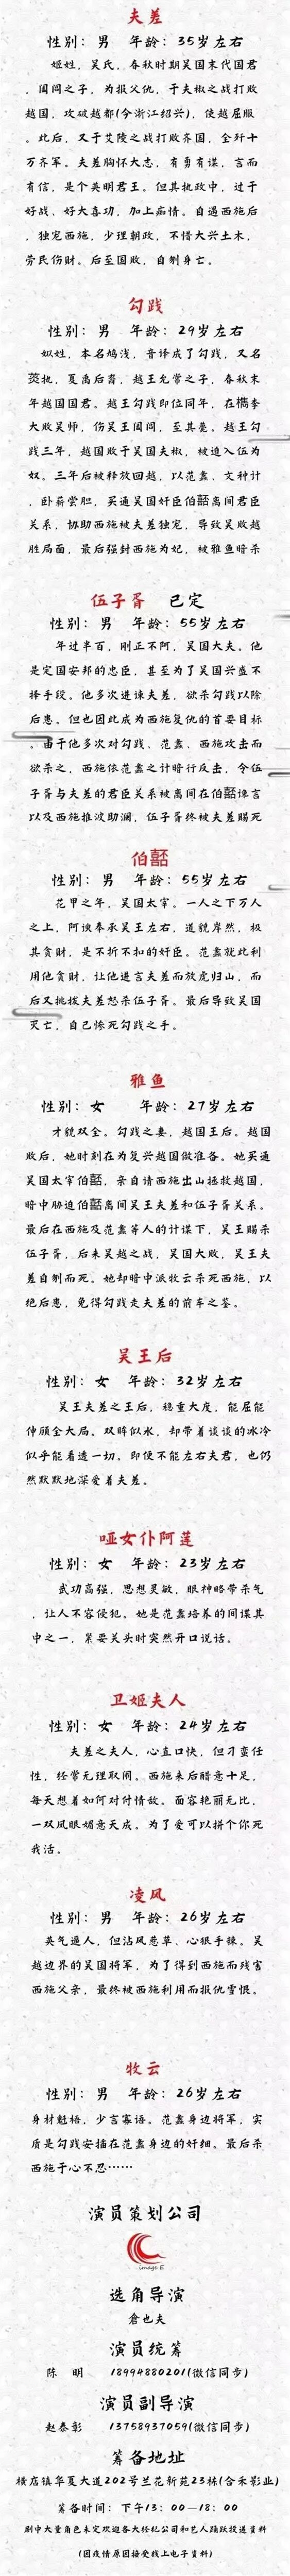 夫差
性别：男 年龄：35岁左右
姬姓，吴氏，春秋时期吴国末代国君
，阖闾之子，为报父仇，于夫椒之战打败
越国，攻破越都(今浙江绍兴)，使越屈服
。此后，又于艾陵之战打败齐国，全歼十
万齐军。夫差胸怀大志，有勇有谋，言而
有信，是个英明君王。但其执政中，过于
好战、好大喜功，加上痴情。自遇西施后
，独宠西施，少理朝政，不惜大兴土木，
劳民伤财。后至国败，自刎身亡。
勾践
性别：男 年龄：29岁左右
姒姓，本名鸠浅，音译成了勾践，又名
菼执，夏禹后裔，越王允常之子，春秋末
年越国国君。越王勾践即位同年，在槜李
大败吴师，伤吴王阖闾，至其薨。越王勾
践三年，越国败于吴国夫椒，被迫入伍为
奴。三年后被释放回越，以范蠡、文种计
，卧薪尝胆，买通吴国奸臣伯嚭离间君臣
关系，协助西施被夫差独宠，导致吴败越
胜局面，最后强封西施为妃，被雅鱼暗杀
伍子胥 已定
性别：男 年龄：55岁左右
年过半百，刚正不阿，吴国大夫。他
是定国安邦的忠臣，甚至为了吴国兴盛不
择手段。他多次进谏夫差，欲杀勾践以除
后患。但也因此成为西施复仇的首要目标
。由于他多次对勾践、范蠡、西施攻击而
欲杀之，西施依范蠡之计暗行反击，令伍
子胥与夫差的君臣关系被离间在伯嚭谗言
以及西施推波助澜，伍子胥终被夫差赐死
伯嚭
性别：男 年龄：55岁左右
花甲之年，吴国太宰。一人之下万人
之上，阿谀奉承吴王左右，道貌岸然，极
其贪财，是不折不扣的奸臣。范蠡就此利
用他贪财，让他进言夫差而放虎归山，而
后又挑拨夫差怒杀伍子胥。最后导致吴国
灭亡，自己惨死勾践之手。
雅鱼
性别：女 年龄：27岁左右
才貌双全。勾践之妻，越国王后。越国
败后，她时刻在为复兴越国做准备。她买通
吴国太宰伯嚭，亲自请西施出山拯救越国，
暗中胁迫伯嚭离间吴王夫差和伍子胥关系。
最后在西施及范蠡等人的计谋下，吴王赐杀
伍子胥，后来吴越之战，吴国大败，吴王夫
差自刎而死。她却暗中派牧云杀死西施，以
绝后患，免得勾践走夫差的前车之鉴。
吴王后
性别：女 年龄：32岁左右
吴王夫差之王后，稳重大度，能屈能
伸顾全大局。双眸似水，却带着谈谈的冰冷
似乎能看透一切。即便不能左右夫君，也仍
然默默地深爱着夫差。
哑女仆阿莲
性别：女 年龄：23岁左右
武功高强，思想灵敏，眼神略带杀气
，让人不容侵犯。她是范蠡培养的间谍其
中之一，紧要关头时突然开口说话。
卫姬夫人
性别：女 年龄：24岁左右
夫差之夫人，心直口快，但刁蛮任
性，经常无理取闹。西施来后醋意十足，
每天想着如何对付情敌。面容艳丽无比，
一双凤眼媚意天成。为了爱可以拼个你死
我活。
凌风
性别：男 年龄：26岁左右
英气逼人，但沾风惹草、心狠手辣。吴
越边界的吴国将军，为了得到西施而残害
西施父亲，最终被西施利用而报仇雪恨。
牧云
性别：男 年龄：26岁左右
身材魁梧，少言寡语。范蠡身边将军，实
质是勾践安插在范蠡身边的奸细。最后杀
西施于心不忍……
演员策划公司
image E
选角导演
仓也夫
演员统筹
陈 明 18994880201(微信同步)
演员副导演
赵泰彰 13758937059(微信同步)
筹备地址
横店镇华夏大道202号兰花新苑23栋(合禾影业)
筹备时间：下午13：00—18：00
剧中大量角色未定欢迎各大经纪公司和艺人踊跃投递资料
(因疫情原因接受线上电子资料)